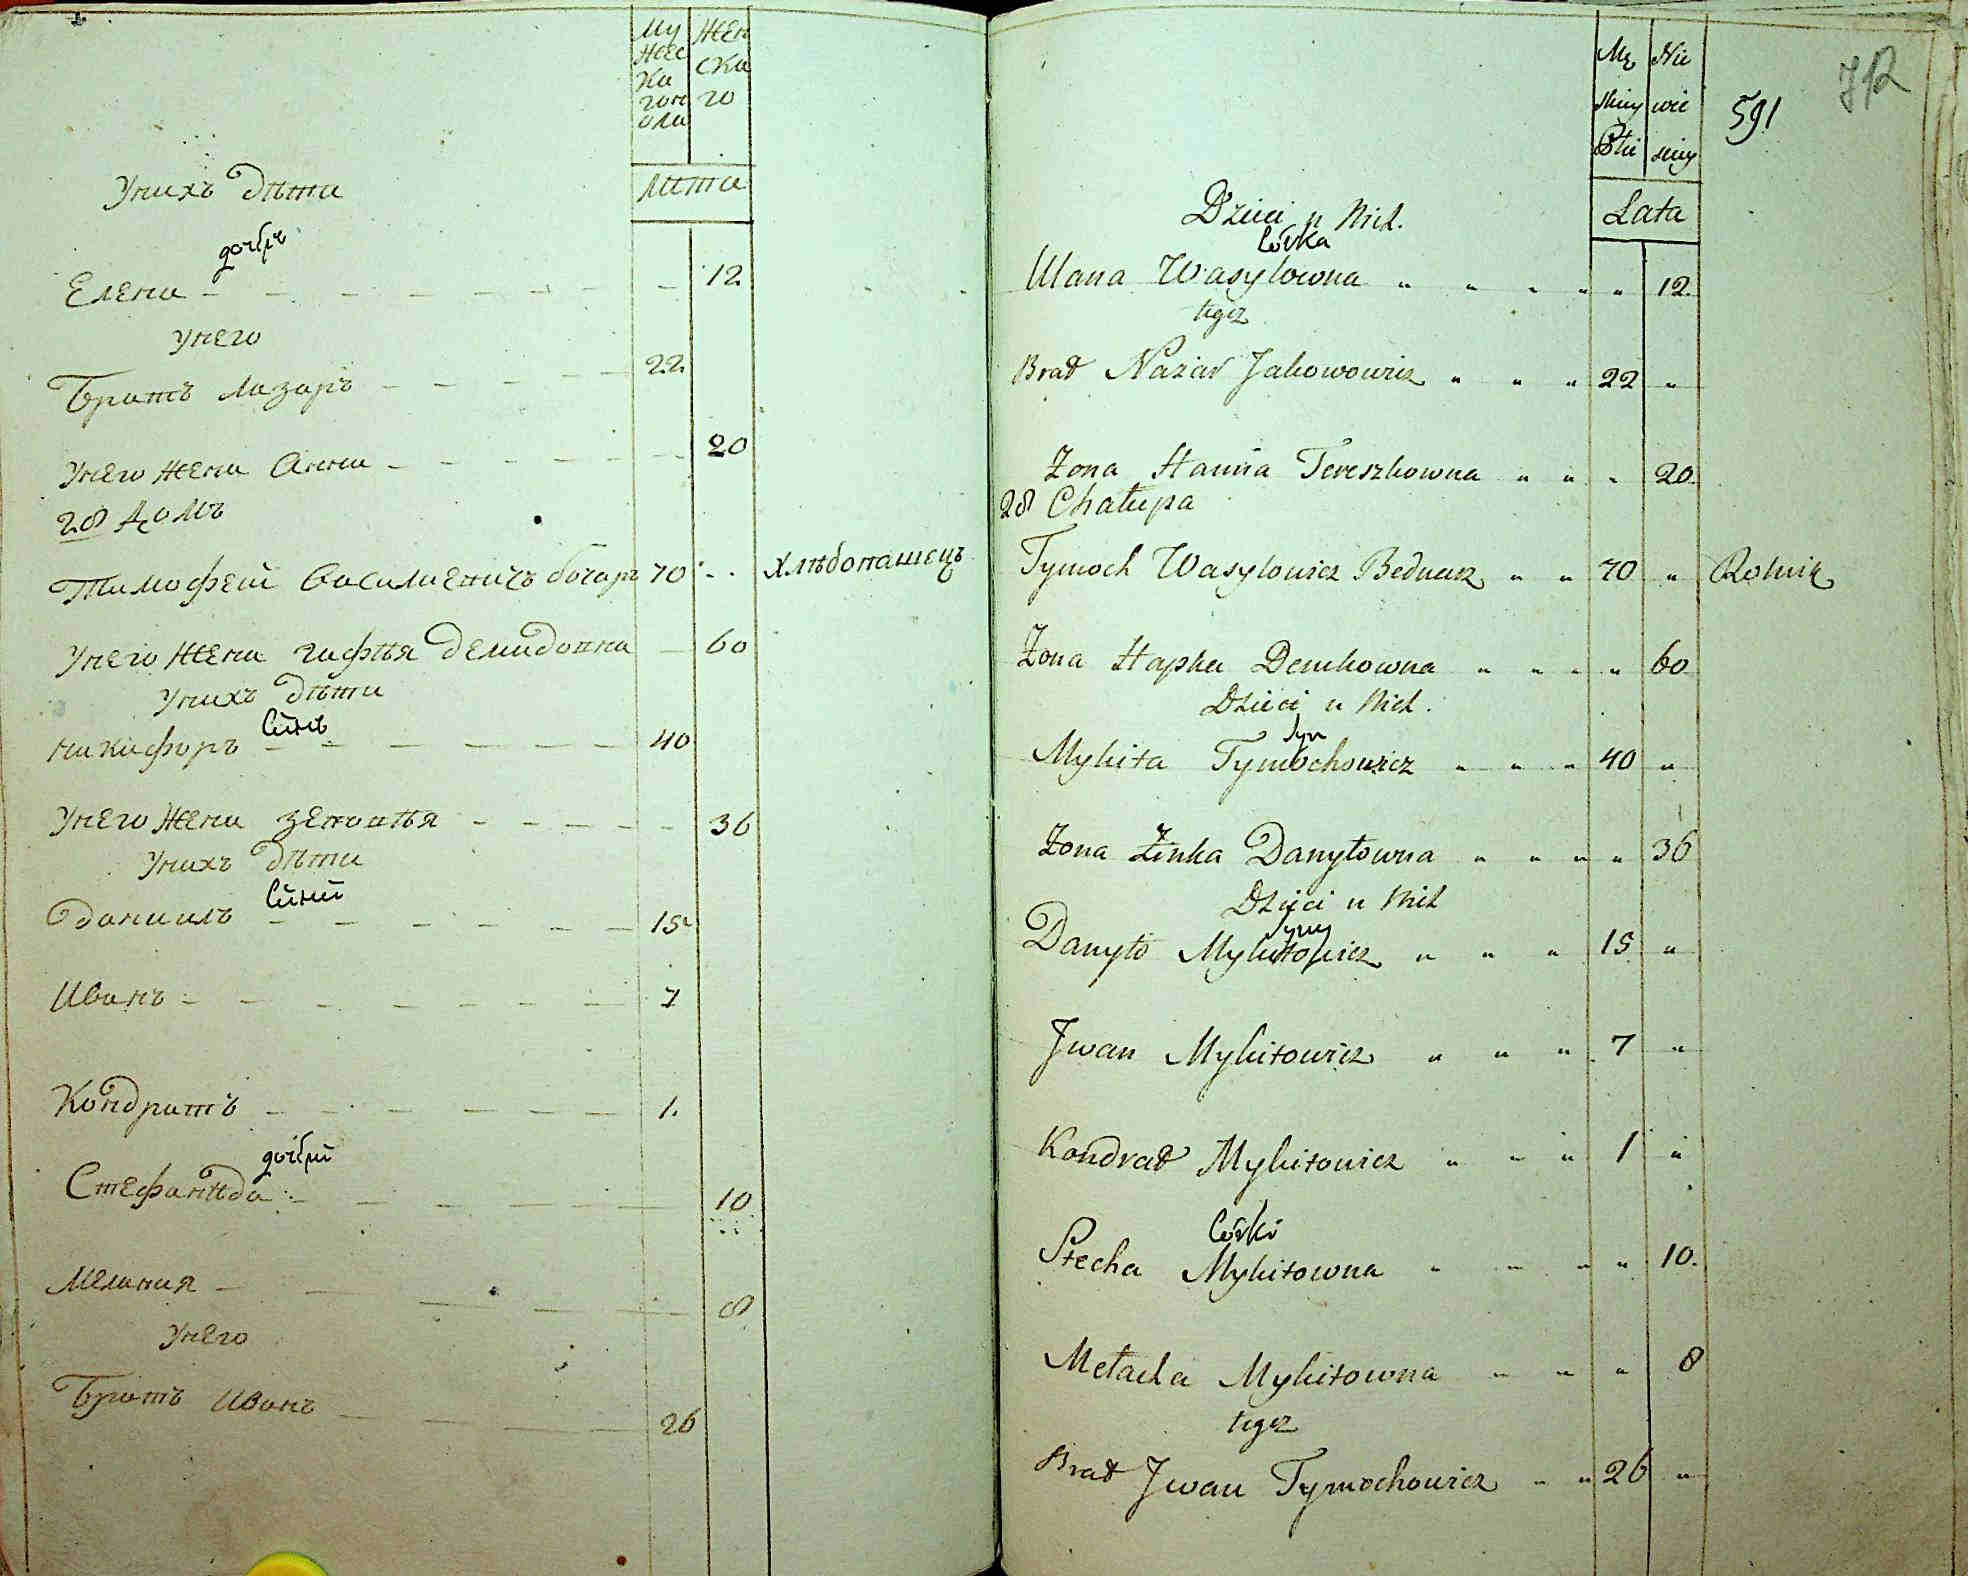 Му Жен
жес ска
ка го
гоп
ола
Лѣта
Унихъ дѣти
дочерь
Елена - - - - - - - - 12
Унего
Братъ Лазаръ - - - - - 22
Унего жена Анна - - - - - - 20
28 Домъ
Тимофей Василиевичъ бочаръ 70 - - хлѣбопашецъ
Унего жена гафѣя демидовна - 60
Унихъ дѣти
Синъ
Никифоръ - - - - - - 40
Унего жена зеновѣя - - - - - 36
Унихъ дѣти
Сини
Даниилъ - - - - - - 15
Иванъ - - - - - - - 7
Кондратъ - - - - - - 1.
дочери
Стефанѣда - - - - - - 10
Мелания - - - - - - 8
Унего
Братъ Иванъ - - - - 26
72
591
Mę Nie
skiey wie
Płci sciey
Lata
Dzieci u Nich.
Córka
Ulana Wasylowna " " " " " 12.
tegoz
Brat Nazar Jakowowicz " " " 22 "
Zona Hanna Tereszkowna " " " 20.
28 Chałupa
Tymoch Wasylowicz Bednarz " " 70 " Rolnik
Zona Hapka Demkowna " " " " 60
Dzieci u Nich.
Syn
Mykita Tymochowicz " " " 40 "
Zona Zinka Danyłowna " " " " 36
Dzieci u Nich
Syny
Danyło Mykitowicz " " " 15 "
Jwan Mykitowicz " " " 7 "
Kondrat Mykitowicz " " " 1 "
Córki
Stecha Mykitowna " " " " 10.
Mełacha Mykitowna " " " 8
tegoz
Brat Jwan Tymochowicz " " 26 "